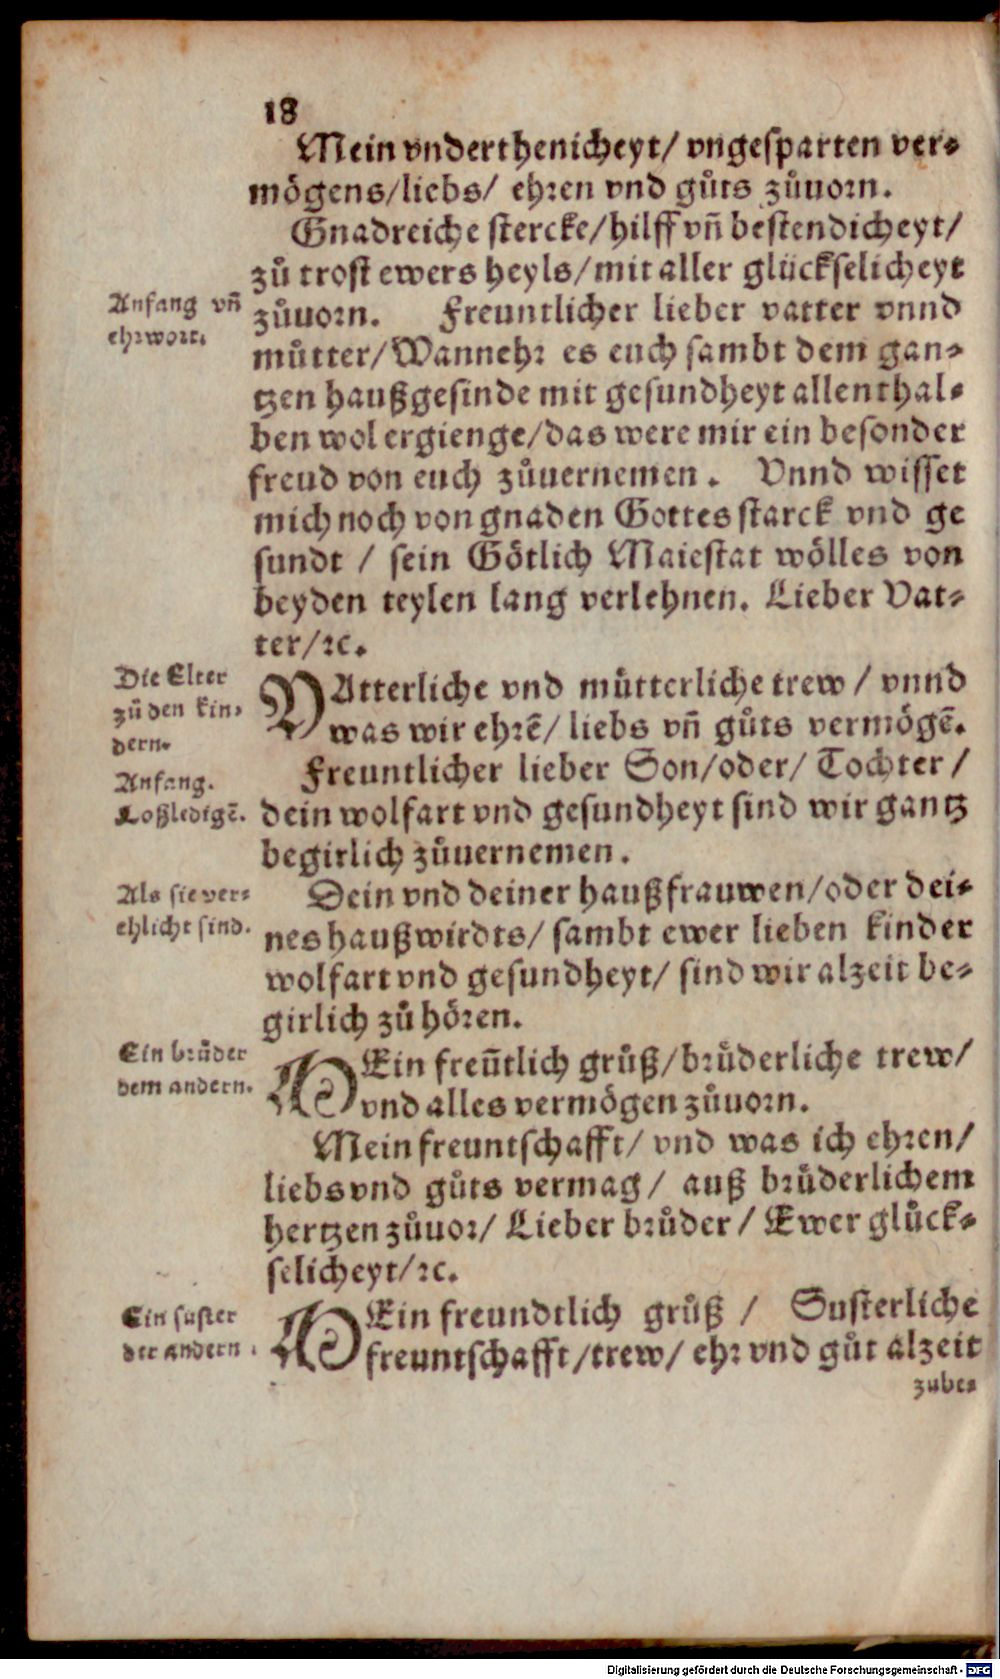 18
Mein vnderthenicheyt/ vngesparten ver⸗
mögens/liebs/ ehren vnd gůts zůuorn.
Gnadreiche stercke/hilff vñ bestendicheyt/
zů trost ewers heyls/mit aller glückselicheyt
Anfang vñ
ehrwort.
zůuorn. Freuntlicher lieber vatter vnnd
můtter/Wannehr es euch sambt dem gan⸗
tzen haußgesinde mit gesundheyt allenthal⸗
ben wol ergienge/das were mir ein besonder
freud von euch zůuernemen. Vnnd wisset
mich noch von gnaden Gottes starck vnd ge
sundt / sein Götlich Maiestat wölles von
beyden teylen lang verlehnen. Lieber Vat⸗
ter/ꝛc.
Die Elter
zů den kin⸗
dern.
VAtterliche vnd můtterliche trew / vnnd
was wir ehrē/ liebs vñ gůts vermögē.
Anfang.
Loßledigē.
Freuntlicher lieber Son/oder/ Tochter /
dein wolfart vnd gesundheyt sind wir gantz
begirlich zůuernemen.
Als sie ver⸗
ehlicht sind.
Dein vnd deiner haußfrauwen/oder dei⸗
nes haußwirdts/ sambt ewer lieben kinder
wolfart vnd gesundheyt/ sind wir alzeit be⸗
girlich zů hören.
Ein brůder
dem andern.
MEin freũtlich grůß/brůderliche trew/
vnd alles vermögen zůuorn.
Mein freuntschafft/ vnd was ich ehren/
liebs vnd gůts vermag/ auß brůderlichem
hertzen zůuor/ Lieber brůder / Ewer glůck⸗
selicheyt/ꝛc.
Ein suster
der andern.
MEin freundtlich grůß / Susterliche
freuntschafft/trew/ ehr vnd gůt alzeit
zube⸗
Digitalisierung gefördert durch die Deutsche Forschungsgemeinschaft - DFG